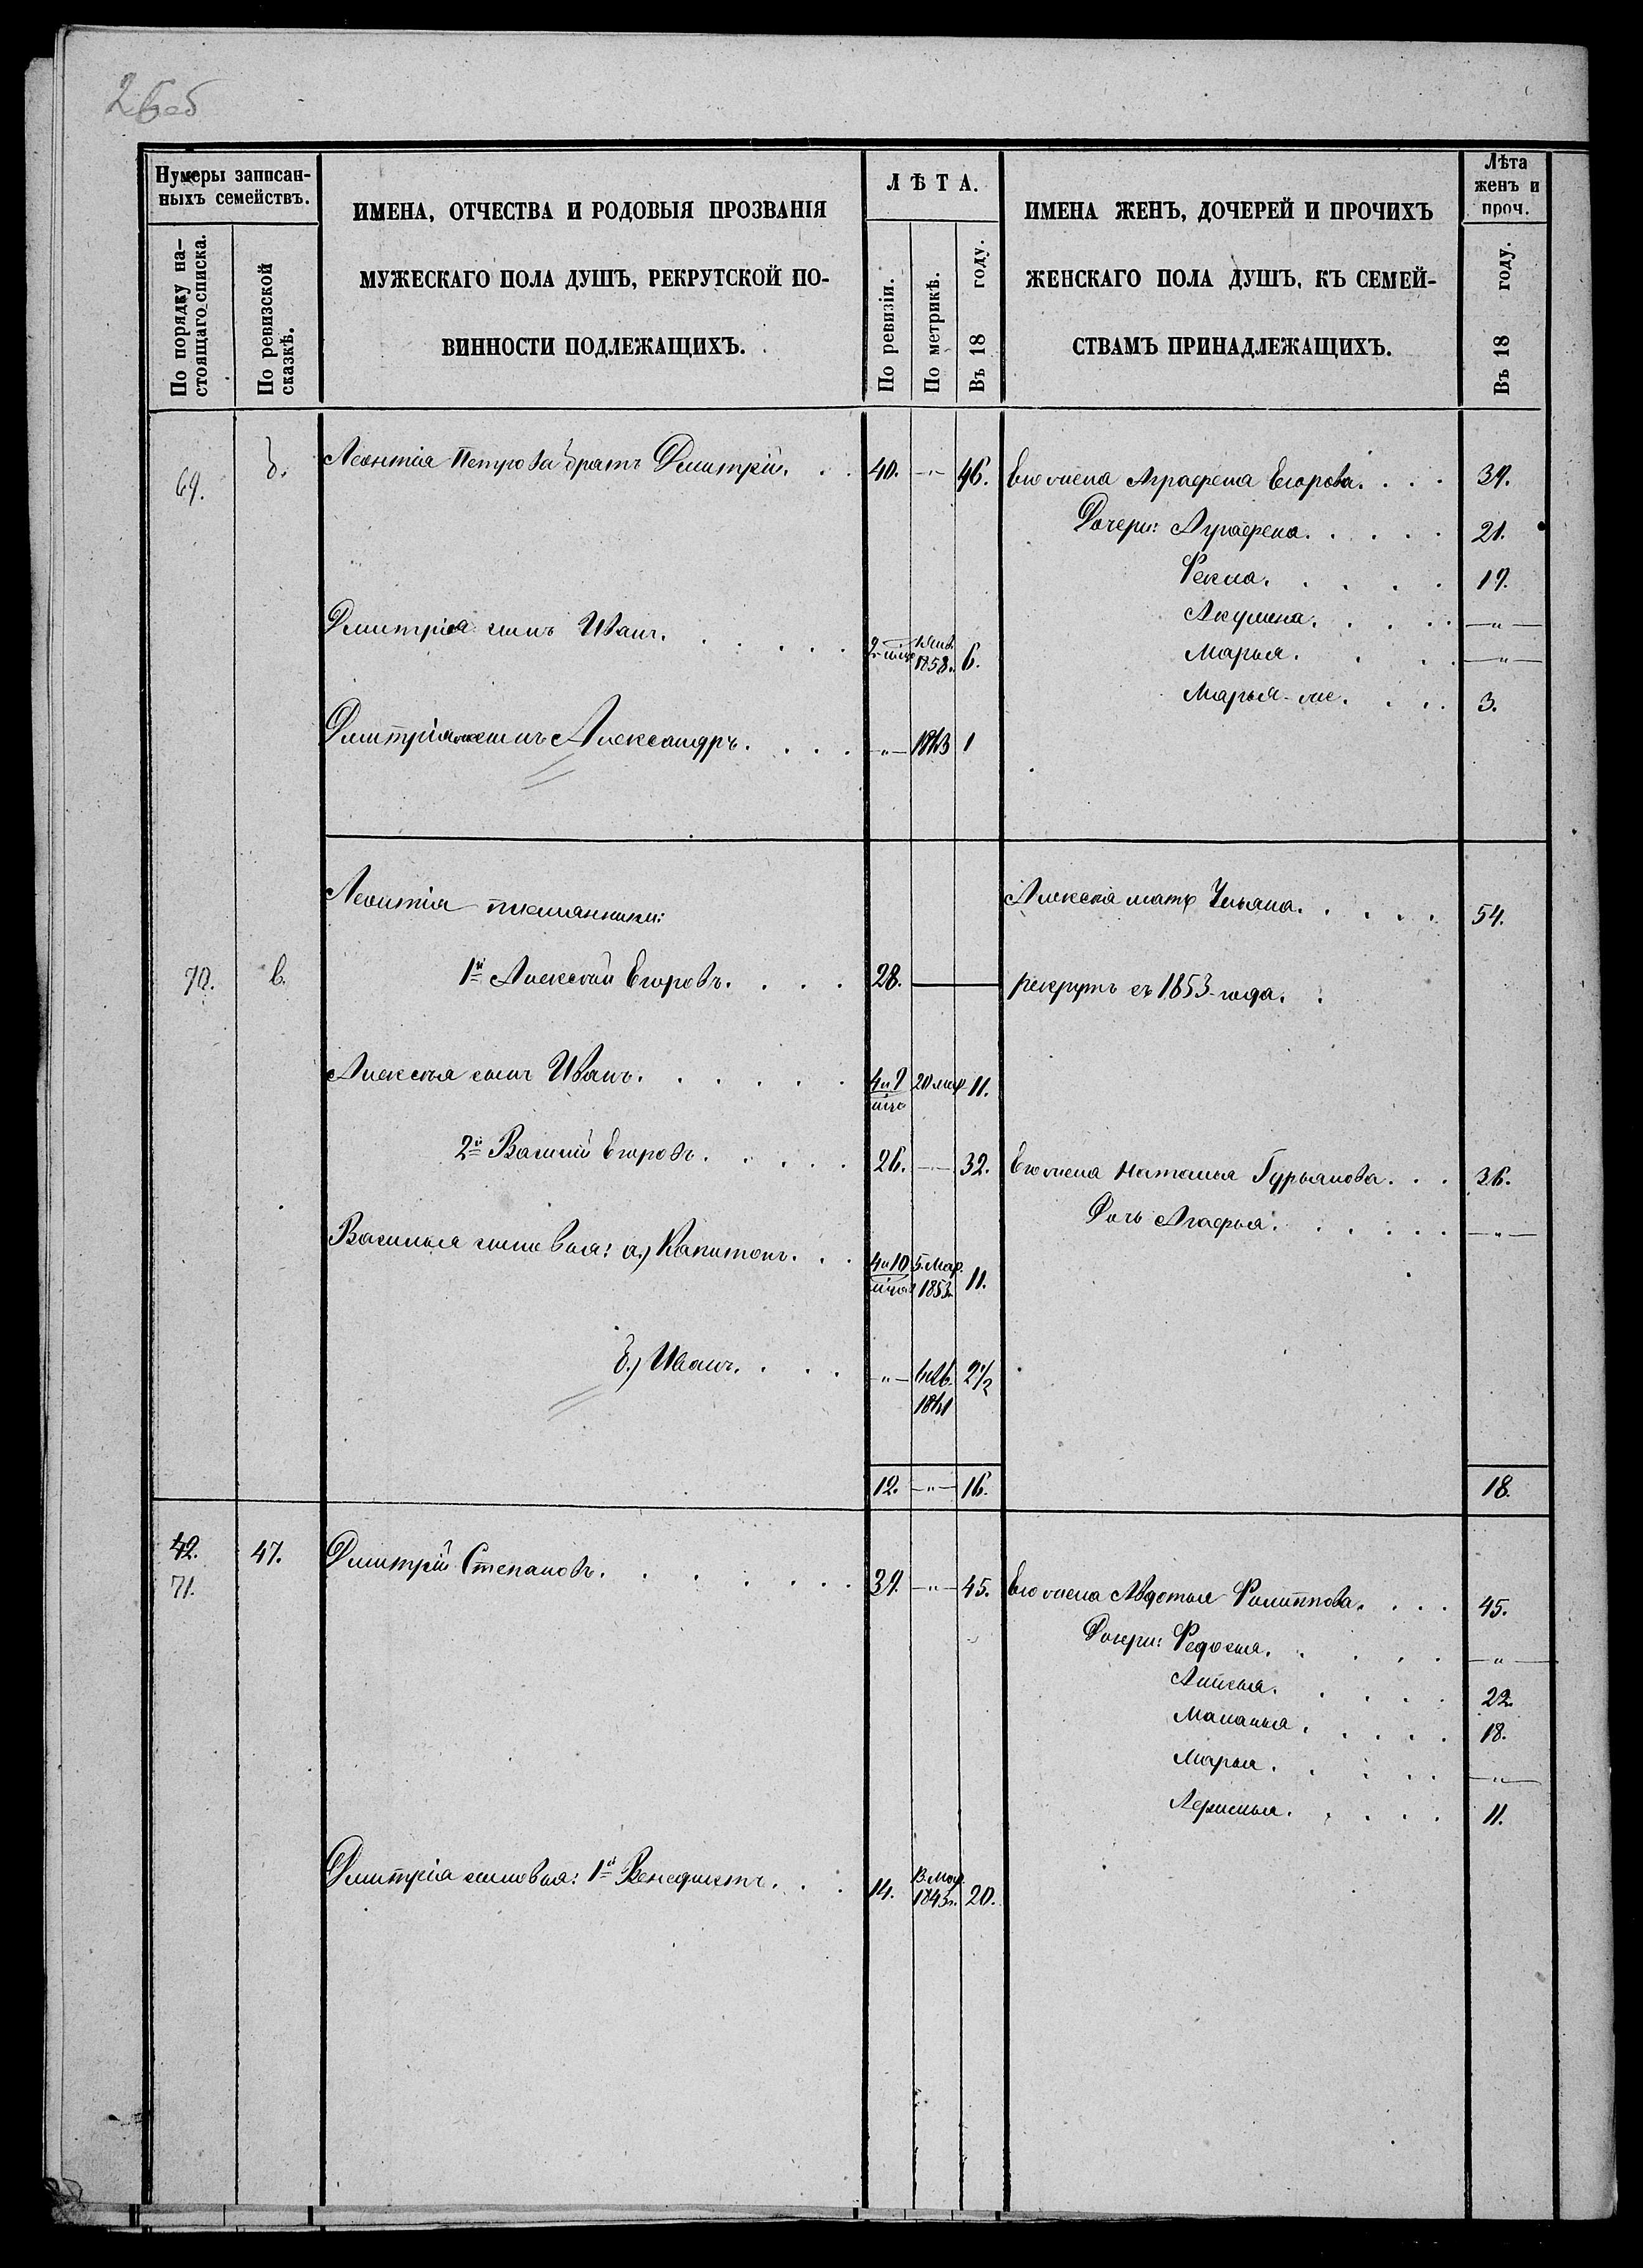 26об
Нумеры записан-
ныхъ семействъ.
По порядку на-
стоящаго списка.
По ревизской
сказкѣ.
ИМЕНА, ОТЧЕСТВА И РОДОВЫЯ ПРОЗВАНІЯ
МУЖЕСКАГО ПОЛА ДУШЪ, РЕКРУТСКОЙ ПО-
ВИННОСТИ ПОДЛЕЖАЩИХЪ.
ЛѢТА.
По ревизіи.
По метрикѣ.
Въ 18 году.
ИМЕНА ЖЕНЪ, ДОЧЕРЕЙ И ПРОЧИХЪ
ЖЕНСКАГО ПОЛА ДУШЪ, КЪ СЕМЕЙ-
СТВАМЪ ПРИНАДЛЕЖАЩИХЪ.
Лѣта
женъ и
проч.
Въ 18 году.
69. б. Леонтія Петрова братъ Дмитрій. 40. -"- 46. Его жена Аграфена Егорова. 39.
Дочери: Аграфена. 21.
Фекла. 19.
Акулина. -"-
Дмитрія сынъ Иванъ. 1858. 6. Марья. -"-
Марья-же. 3.
Дмитрія же сынъ Александръ. -"- 1863 1
Леонтія племянники: Алексѣя мать Ульяна. 54.
70. в. 1й Алексѣй Егоровъ. 28. рекрутъ съ 1853 года.
Алексѣя сынъ Иванъ. 4 и 9 20 мар 11.
2й Василій Егоровъ. 26. 32. Его жена Наталья Гурьянова. 36.
Дочь Агафья. -"-
Василья сыновья: а.) Капитонъ. 4 и 10 5. Мар. 1853 11.
б.) Иванъ. -"- 1861 2 1/2
12. -"- 16. 18.
42. 47. Дмитрій Степановъ. 39. -"- 45. Его жена Авдотья Филиппова. 45.
71. Дочери: Федосья. -"-
Анисья. 22.
Маланья. 18.
Марья. -"-
11.
Дмитрія сыновья: 1й Венедиктъ. 14. 13. Мар. 1843. 20.